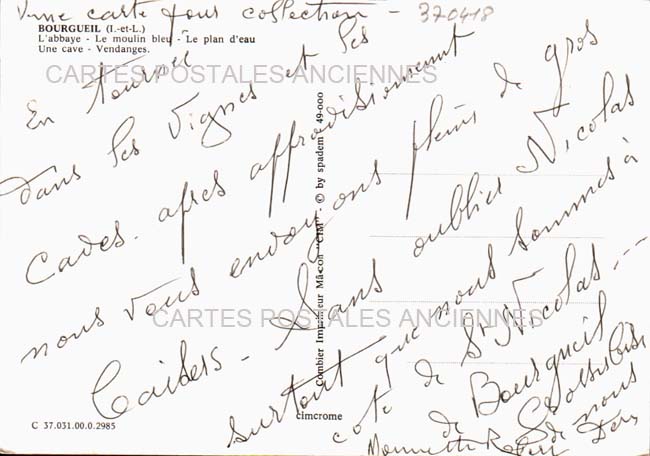 Une carte pour collection -
370418
BOURGUEIL (I.-et-L.)
L'abbaye - Le moulin bleu - Le plan d'eau
Une cave - Vendanges.
CARTES POSTALES ANCIENNES
En tournée
dans les vignes et les
caves. après approvisionnement
nous vous envoyons pleins de gros
baisers - Sans oublier Nicolas
surtout que nous sommes à
coté de St Nicolas ---
de Bourgueil
de nous
Monnette Robert
CARTES POSTALES ANCIENNES
Combier Imprimeur Mâcon "CIM" - © by spadem 49-000
cimcrome
C 37.031.00.0.2985